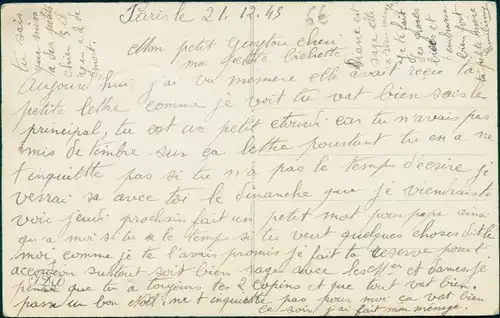 Paris le 21.12.45
Mon petit Guytou cheri
ma petite bichette
Aujourd'hui j'ai vu memere elle avait recu ta
petite lettre comme je voit tu vat bien sais le
principal, tu est un petit etourdi car tu n'avais pas
mis de timbre sur ça lettre pourtant tu en a ne
t'inquiette pas si tu n'a pas le temps d'ecrire je
verrai sa avec toi le dimanche que je viendrais te
voir jeudi prochain fait un petit mot pour papa ainsi
qu'a moi si tu a le temps si tu veut quelques choses dit le
moi, comme je te l'avais promis je fait ta reserve pour l'
accordeon surtout soit bien sage avec les et dames je
pense que tu a toujours tes 2 copins et que tout vat bien.
passe un bon Noël, ne t'inquiette pas pour moi ça vat bien
ce soir, j'ai fait mon ménage.
tu sais
que mimi
a des petits
chien il
y en a 2 de
mort.
66
sage elle
je te fait
de gros
bises et
t'embrasse
bien fort
ta petite mère